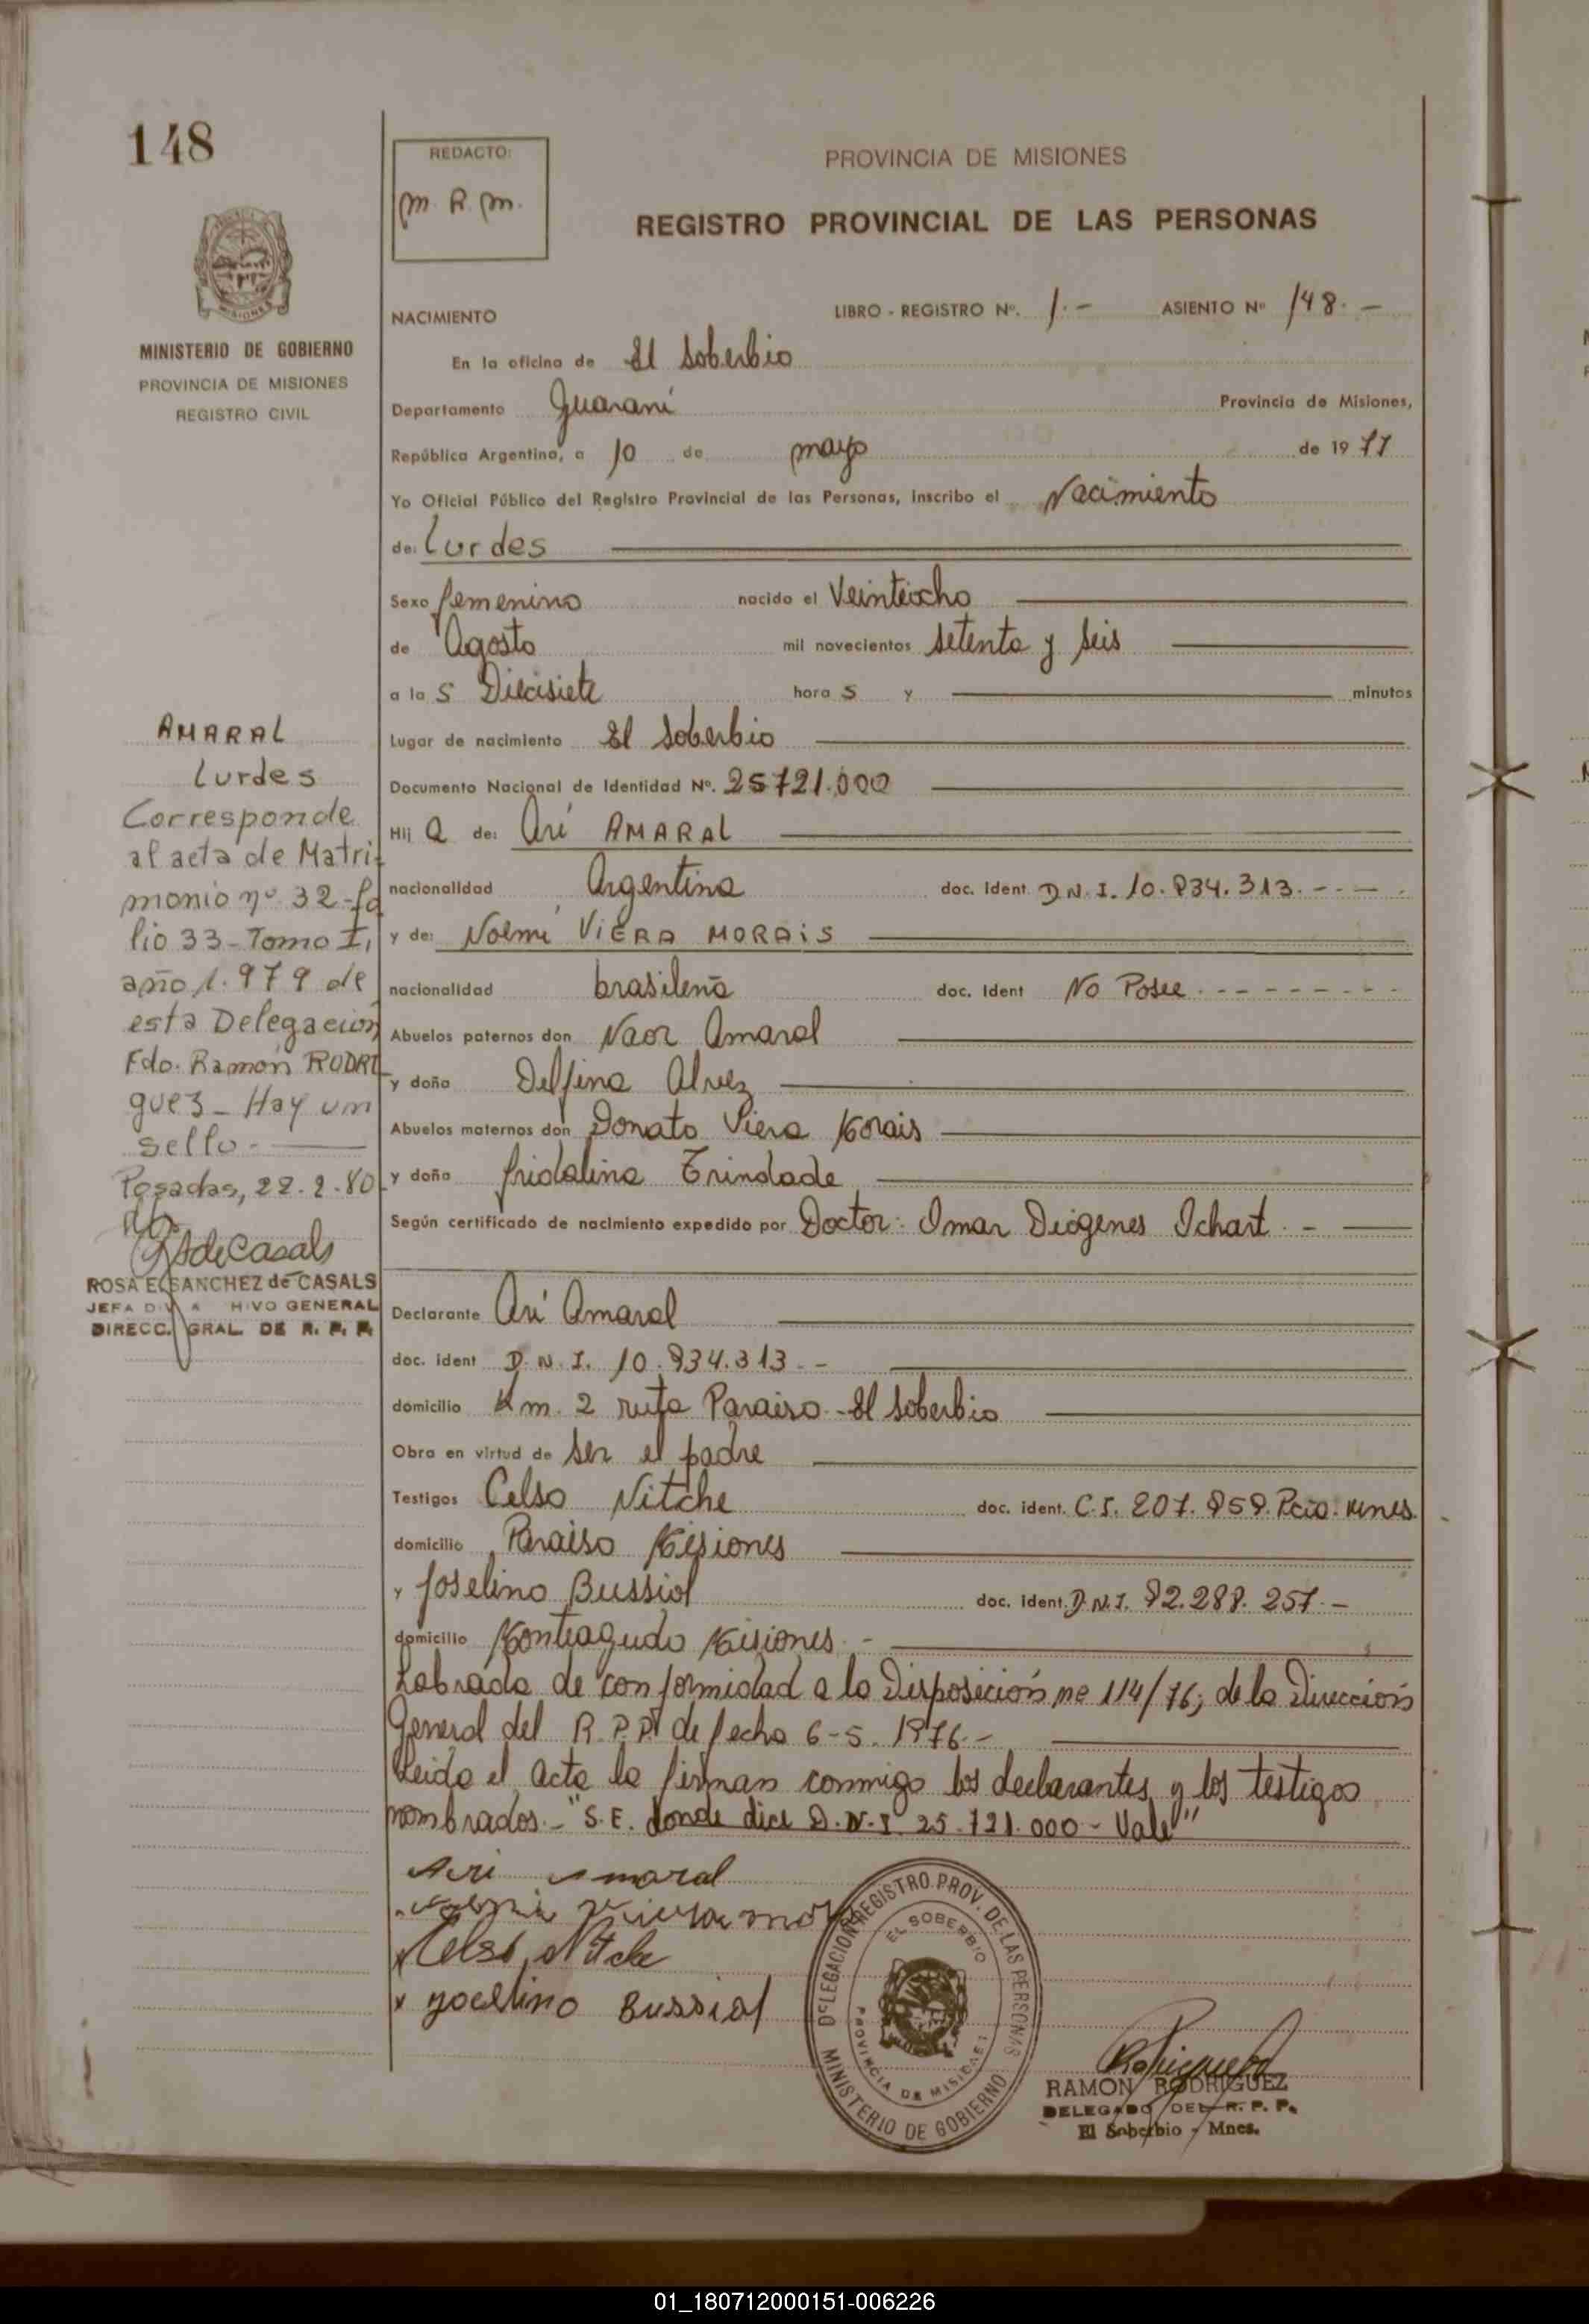 148
REDACTO:
m. R. m.
PROVINCIA DE MISIONES
REGISTRO PROVINCIAL DE LAS PERSONAS
MINISTERIO DE GOBIERNO
PROVINCIA DE MISIONES
REGISTRO CIVIL
NACIMIENTO
LIBRO - REGISTRO Nº. 1.- ASIENTO Nº 148.-
En la oficina de El Soberbio
Departamento Guaraní Provincia de Misiones,
República Argentina, a 10 de mayo de 1977
Yo Oficial Público del Registro Provincial de las Personas, inscribo el Nacimiento
de: Lurdes
Sexo femenino nacido el Veinteiocho
de Agosto mil novecientos setenta y seis
a la s Diecisiete hora s y minutos
Lugar de nacimiento El Soberbio
Documento Nacional de Identidad Nº. 25721.000
Hij a de: Arí AMARAL
nacionalidad Argentina doc. ident. D.N.I. 10.934.313.-
y de: Noemí VIERA MORAIS
nacionalidad brasileña doc. ident No Posee.
Abuelos paternos don Naor Amaral
y doña Delfina Alvez
Abuelos maternos don Donato Viera Morais
y doña fridalina Trindade
Según certificado de nacimiento expedido por Doctor: Omar Diógenes Ichart.-
Declarante Arí Amaral
doc. ident D.N.I. 10.934.313.-
domicilio Km. 2 ruta Paraiso - El Soberbio
Obra en virtud de ser el padre
Testigos Celso Nitche doc. ident. C.I. 207.959. Pcia. Mnes.
domicilio Paraiso Misiones
y Joselino Bussiol doc. ident. D.N.I. 92.288.257.-
domicilio Monteagudo Misiones.-
Labrada de conformidad a la Disposición nº 114/76; de la Dirección
General del R.P.P. de fecha 6-5-1976.-
Leida el acta la firman conmigo los declarantes y los testigos
nombrados.- "S.E. donde dice D.N.I. 25.721.000 - Vale"
Ari Amaral
Celso Nitche
x Jocelino Bussiol
AMARAL
Lurdes
Corresponde
al acta de Matri-
monio nº 32 - fo
lio 33 - Tomo I,
año 1.979 de
esta Delegacion
Fdo. Ramón RODRI
guez - Hay un
sello.-
Posadas, 22.2.80
RSdeCasals
ROSA E. SANCHEZ de CASALS
JEFA DIV. A HIVO GENERAL
DIRECC. GRAL. DE R. P. P.
DELEGACION REGISTRO PROV. DE LAS PERSONAS
EL SOBERBIO
PROVINCIA DE MISIONES
MINISTERIO DE GOBIERNO
RAMON RODRIGUEZ
DELEGADO DEL R. P. P.
El Soberbio - Mnes.
01_180712000151-006226